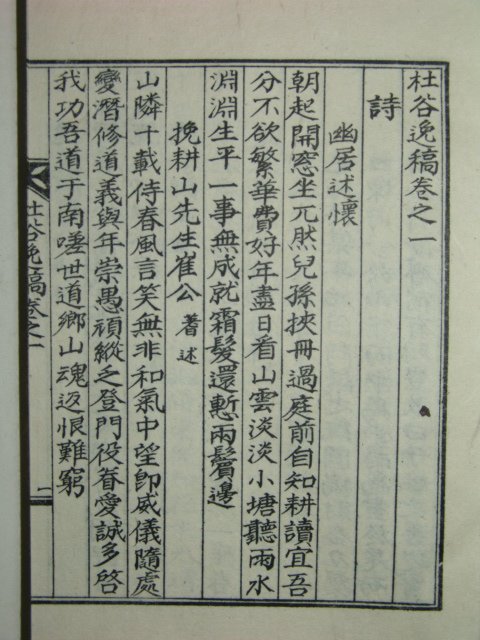 杜谷逸稿卷之一
詩
幽居述懷
朝起開窓坐兀然兒孫挾冊過庭前自知耕讀宜吾
分不欲繁華費好年盡日看山雲淡淡小塘聽雨水
淵淵生平一事無成就霜髮還慙兩鬢邊
挽耕山先生崔公著述
山隣十載侍春風言笑無非和氣中望卽威儀隨處
變潛修道義與年崇愚頑縱乏登門役眷愛誠多啓
我功吾道于南嗟世道鄕山魂返恨難窮
杜谷逸稿卷之一
一